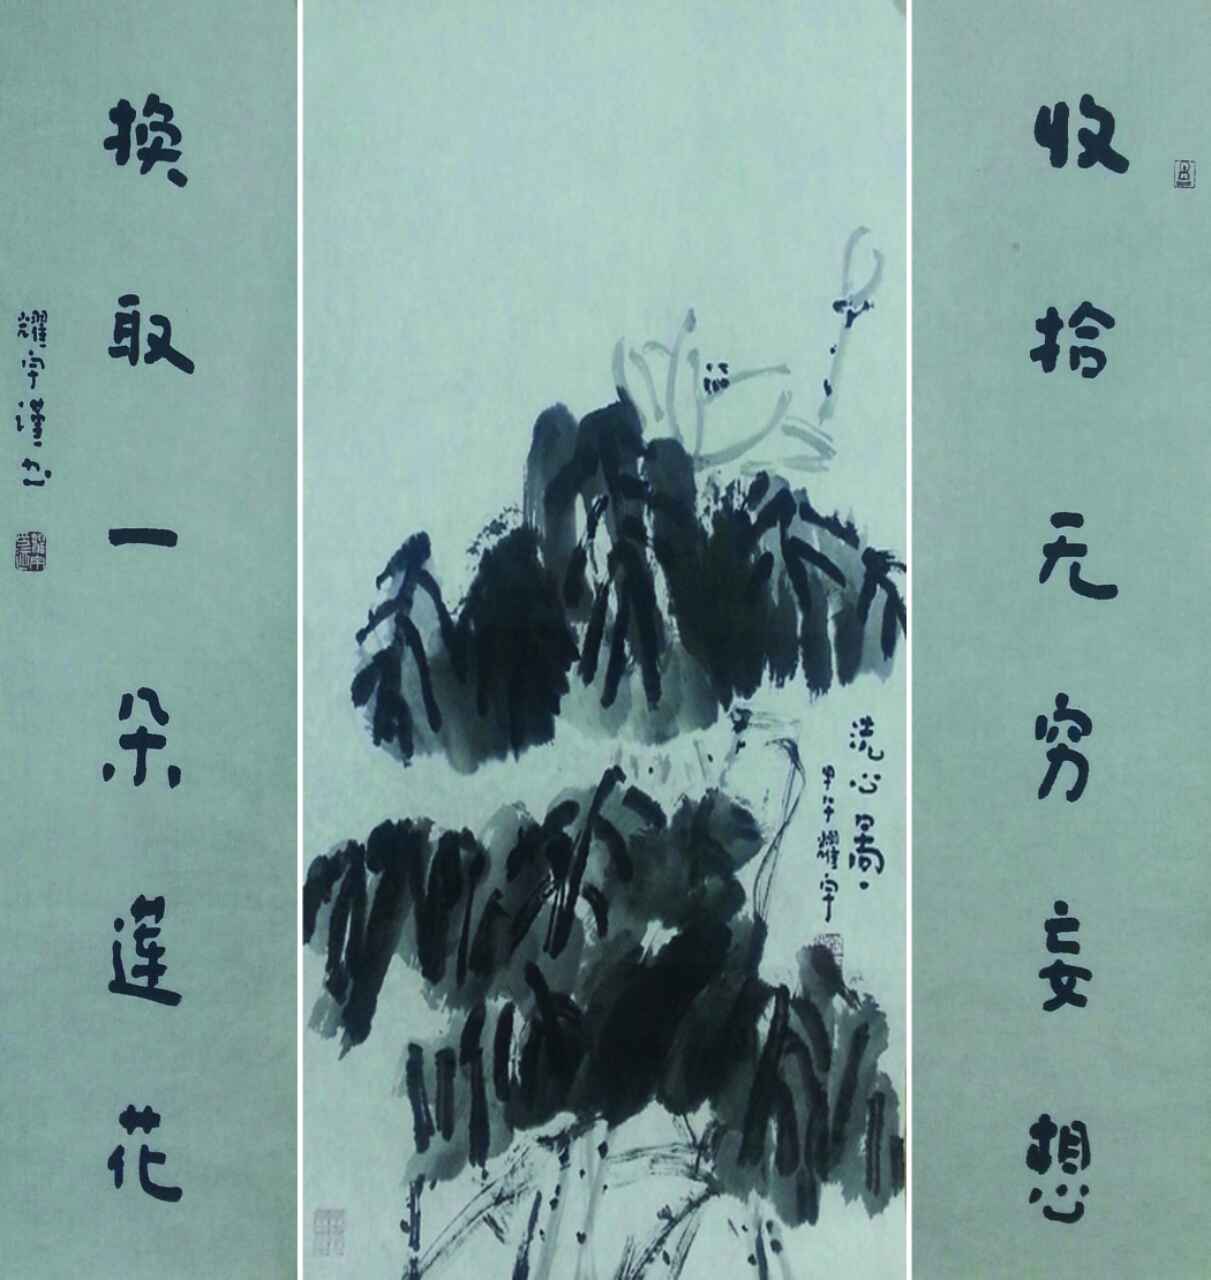 收拾无穷妄想
洗心图
甲午耀宇
换取一朵莲花
耀宇谨书